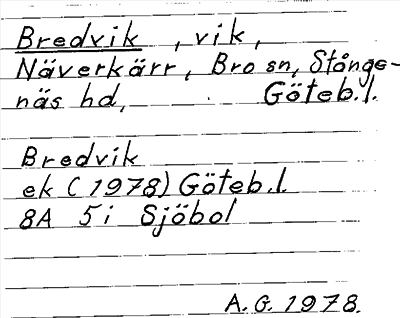 Bredvik , vik,
Näverkärr, Bro sn, Stånge-
näs hd, Göteb.l.
Bredvik
ek (1978) Göteb.l.
8A 5i Sjöbol
A.G. 1978.